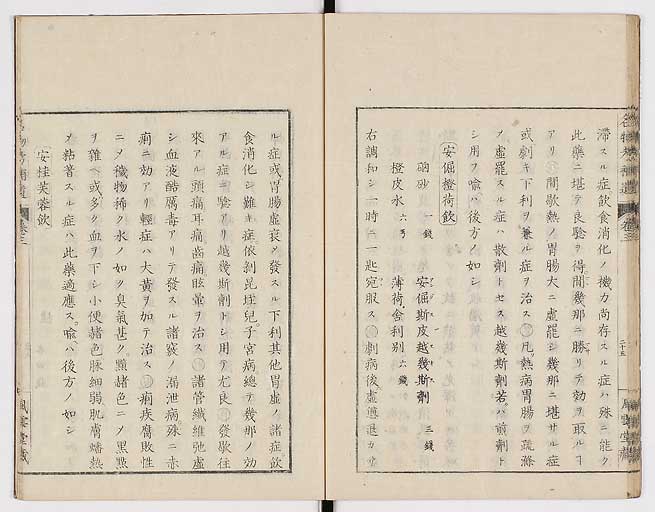 滞スル症飲食消化ノ機力尚存スル症ハ殊ニ能ク
此藥ニ堪テ良驗ヲ得間幾那ニ勝リテ効ヲ取ルヿ
アリ間歇熱ノ胃腸大ニ虚罷シ幾那ニ堪サル症
或劇キ下利ヲ兼ル症ヲ治ス凡熱病胃腸ヲ疏滌
ノ虚罷スル症ハ散劑トセス越幾斯劑若ハ煎劑ト
シ用ヲ喩ハ後方ノ如シ
安倔橙荷飲
硇砂 一錢 安倔斯皮越幾斯劑 三錢
橙皮水 六 薄荷舎利別 六錢
右調和シ一時ニ一匙宛服ス劇病後虚憊退カサ
ル症或胃腸虚衰メ發スル下利其他胃虚ノ諸症飲
食消化シ難キ症依剝昆垤兒子宮病總テ幾那ノ効
アル症ニ驗アリ越幾斯劑トシ用テ尤良發歇往
來アル頭痛耳痛齒痛眩暈ヲ治ス諸管纖維弛虚
シ血液酷厲毒アリテ發スル諸衮ノ漏泄病殊ニ赤
痢ニ効アリ輕症ハ大黄ヲ加テ治ス痢疾腐敗性
ニメ機物稀ク水ノ如ク臭氣甚ク顯赭色ニメ黒點
ヲ雜ヘ或多ク血ヲ下シ小便赭色脉細弱肌膚燔熱
メ粘着スル症ハ此藥適應ス喩ハ後方ノ如シ
安桂芙蓉飲
名物考補遺 巻三
二十五
風雲堂藏